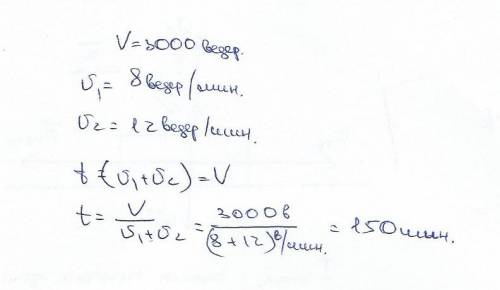 V=3000 ведер.
υ₁= 8 ведер/мин.
υ₂= 12 ведер/мин.
t·(υ₁+υ₂)=V
t= V/(υ₁+υ₂) = 3000в/(8+12)в/мин. = 150 мин.